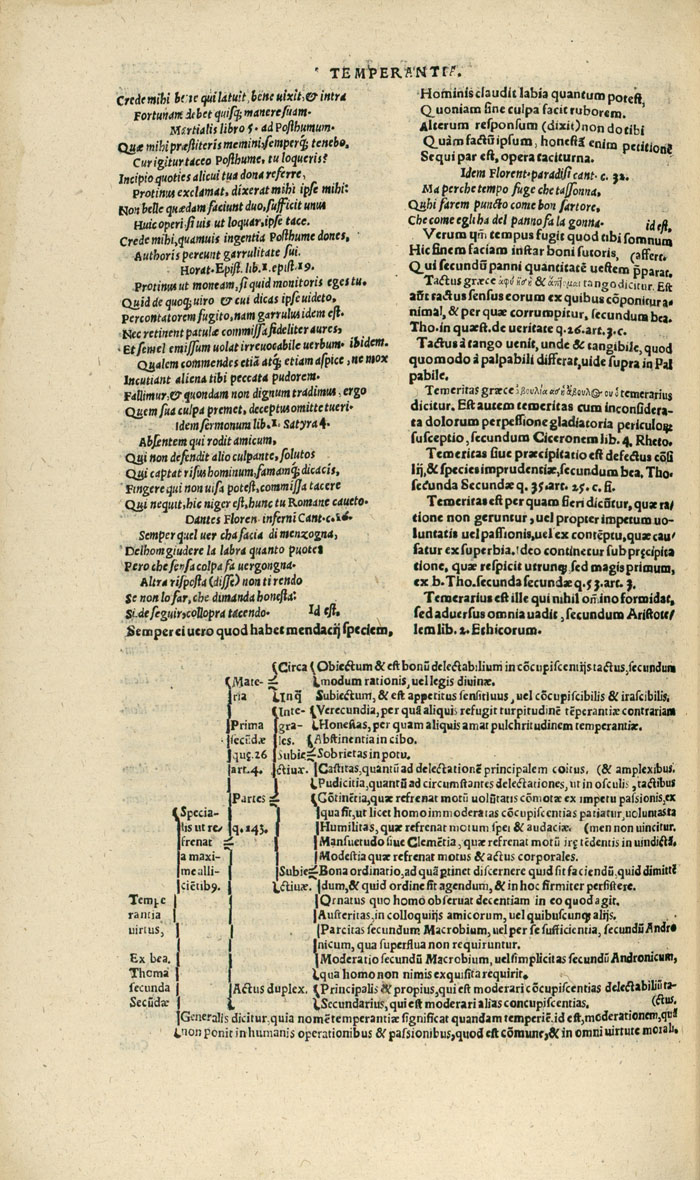 TEMPERANTIA.
Crede mihi bene qui latuit, bene uixit, & intra
Fortunam debet quisq; manere suam.
Martialis libro 5. ad Posthumum.
Quæ mihi præstiteris memini, semperq; tenebo,
Cur igitur taceo Posthume, tu loqueris?
Incipio quoties alicui tua dona referre,
Protinus exclamat, dixerat mihi ipse mihi:
Non belle quædam faciunt duo, sufficit unus
Huic operi: si uis ut loquar, ipse tace.
Crede mihi, quamuis ingentia Posthume dones,
Authoris pereunt garrulitate sui.
Horat. Epist. lib. 1. epist. 19.
Protinus ut moneam, si quid monitoris eges tu.
Quid de quoq; uiro & cui dicas ipse uideto,
Percontatorem fugito, nam garrulus idem est.
Nec retinent patulæ commissa fideliter aures,
Et semel emissum uolat irreuocabile uerbum. ibidem.
Qualem commendes etiã atq; etiam aspice, ne mox
Incutiant aliena tibi peccata pudorem.
Fallimur, & quondam non dignum tradimus, ergo
Quem sua culpa premet, deceptus omitte tueri.
Idem sermonum lib. 1. Satyra 4.
Absentem qui rodit amicum,
Qui non defendit alio culpante, solutos
Qui captat risus hominum, famamq; dicacis,
Fingere qui non uisa potest, commissa tacere
Qui nequit, hic niger est, hunc tu Romane caueto.
Dantes Floren. inferni Cant. c. 16.
Semper quel uer cha facia di menzogna,
Delhom giudere la labra quanto puote
Pero che sensa colpa fa uergongna.
Altra risposta (disse) non ti rendo
Se non lo far, che dimanda honesta:
Si de seguir, collopra tacendo. Id est.
Semper ei uero quod habet mendacij speciem,
Hominis claudit labia quantum potest,
Quoniam sine culpa facit ruborem.
Alterum responsum (dixit) non do tibi
Quàm factũ ipsum, honestã enim petitionẽ
Sequi par est, opera taciturna.
Idem Florent. paradisi cant. c. 32.
Ma perche tempo fuge che tassonna,
Quhi farem puncto come bon sartore,
Che come egli ha del panno fa la gonna. id est,
Verum qm̃ tempus fugit quod tibi somnum
Hic finem faciam instar boni sutoris, (affert.
Qui secundũ panni quantitatẽ uestem pparat.
Tactus græce ἁφὴ tango dicitur. Est
aũt tactus sensus eorum ex quibus cõponitur a-
nimal, & per quæ corrumpitur, secundum bea.
Tho. in quæst. de ueritate q. 26. art. 3. c.
Tactus à tango uenit, unde & tangibile, quod
quomodo à palpabili differat, uide supra in Pal
pabile.
Temeritas græce temerarius
dicitur. Est autem temeritas cum inconsidera-
ta dolorum perpessione gladiatoria periculorꝝ
susceptio, secundum Ciceronem lib. 4. Rheto.
Temeritas siue præcipitatio est defectus cõsi
lij, & species imprudentiæ, secundum bea. Tho.
secunda Secundæ q. 35. art. 25. c. fi.
Temeritas est per quam fieri dicũtur, quæ ra/
tione non geruntur, uel propter impetum uo-
luntatis uel passionis, uel ex contẽptu, quæ cau/
satur ex superbia. Ideo continetur sub præcipita
tione, quæ respicit utrunq; sed magis primum,
ex b. Tho. secunda secundæ q. 53. art. 3.
Temerarius est ille qui nihil om̃ino formidat,
sed aduersus omnia uadit, secundum Aristote/
lem lib. 2. Ethicorum.
Circa Obiectum & est bonũ delectabilium in cõcupiscentijs tactus, secundum
Mate- modum rationis, uel legis diuinæ.
ria Inq̃ Subiectum, & est appetitus sensitiuus, uel cõcupiscibilis & irascibilis.
Inte- Verecundia, per quã aliquis refugit turpitudinẽ tẽperantiæ contrariam
Prima gra- Honestas, per quam aliquis amat pulchritudinem temperantiæ.
secũdæ les. Abstinentia in cibo.
quę. 26 Subie Sobrietas in potu.
art. 4. ctiuæ. Castitas, quantũ ad delectationẽ principalem coitus. (& amplexibus.
Pudicitia, quantũ ad circumstantes delectationes, ut in osculis, tactibus
Partes Cõtinẽtia, quæ refrenat motũ uolũtatis cõmotæ ex impetu passionis, ex
Specia- qua fit, ut licet homo immoderatas cõcupiscentias patiatur, uoluntas ta
lis ut re q. 143. Humilitas, quæ refrenat motum spei & audaciæ. (men non uincitur.
frenat Mansuetudo siue Clemẽtia, quæ refrenat motũ irę tẽdentis in uindictã.
a maxi- Modestia quæ refrenat motus & actus corporales.
me alli- Subie Bona ordinatio, ad quã ptinet discernere quid sit faciendũ, quid dimittẽ
ciẽtib9. ctiuæ. dum, & quid ordine sit agendum, & in hoc firmiter persistere.
Tempe Ornatus quo homo obseruat decentiam in eo quod agit.
rantia Austeritas, in colloquijs amicorum, uel quibuscunq; alijs.
uirtus, Parcitas secundum Macrobium, uel per se sufficientia, secundũ Andro
nicum, qua superflua non requiruntur.
Ex bea. Moderatio secundũ Macrobium, uel simplicitas secundũ Andronicum,
Thoma qua homo non nimis exquisita requirit.
secunda Actus duplex. Principalis & propius, qui est moderari cõcupiscentias delectabiliũ ta-
Secũdæ Secundarius, qui est moderari alias concupiscentias. (ctus.
Generalis dicitur, quia nomẽ temperantiæ significat quandam temperiẽ. id est, moderationem, quã
non ponit in humanis operationibus & passionibus, quod est cõmune, & in omni uirtute morali.